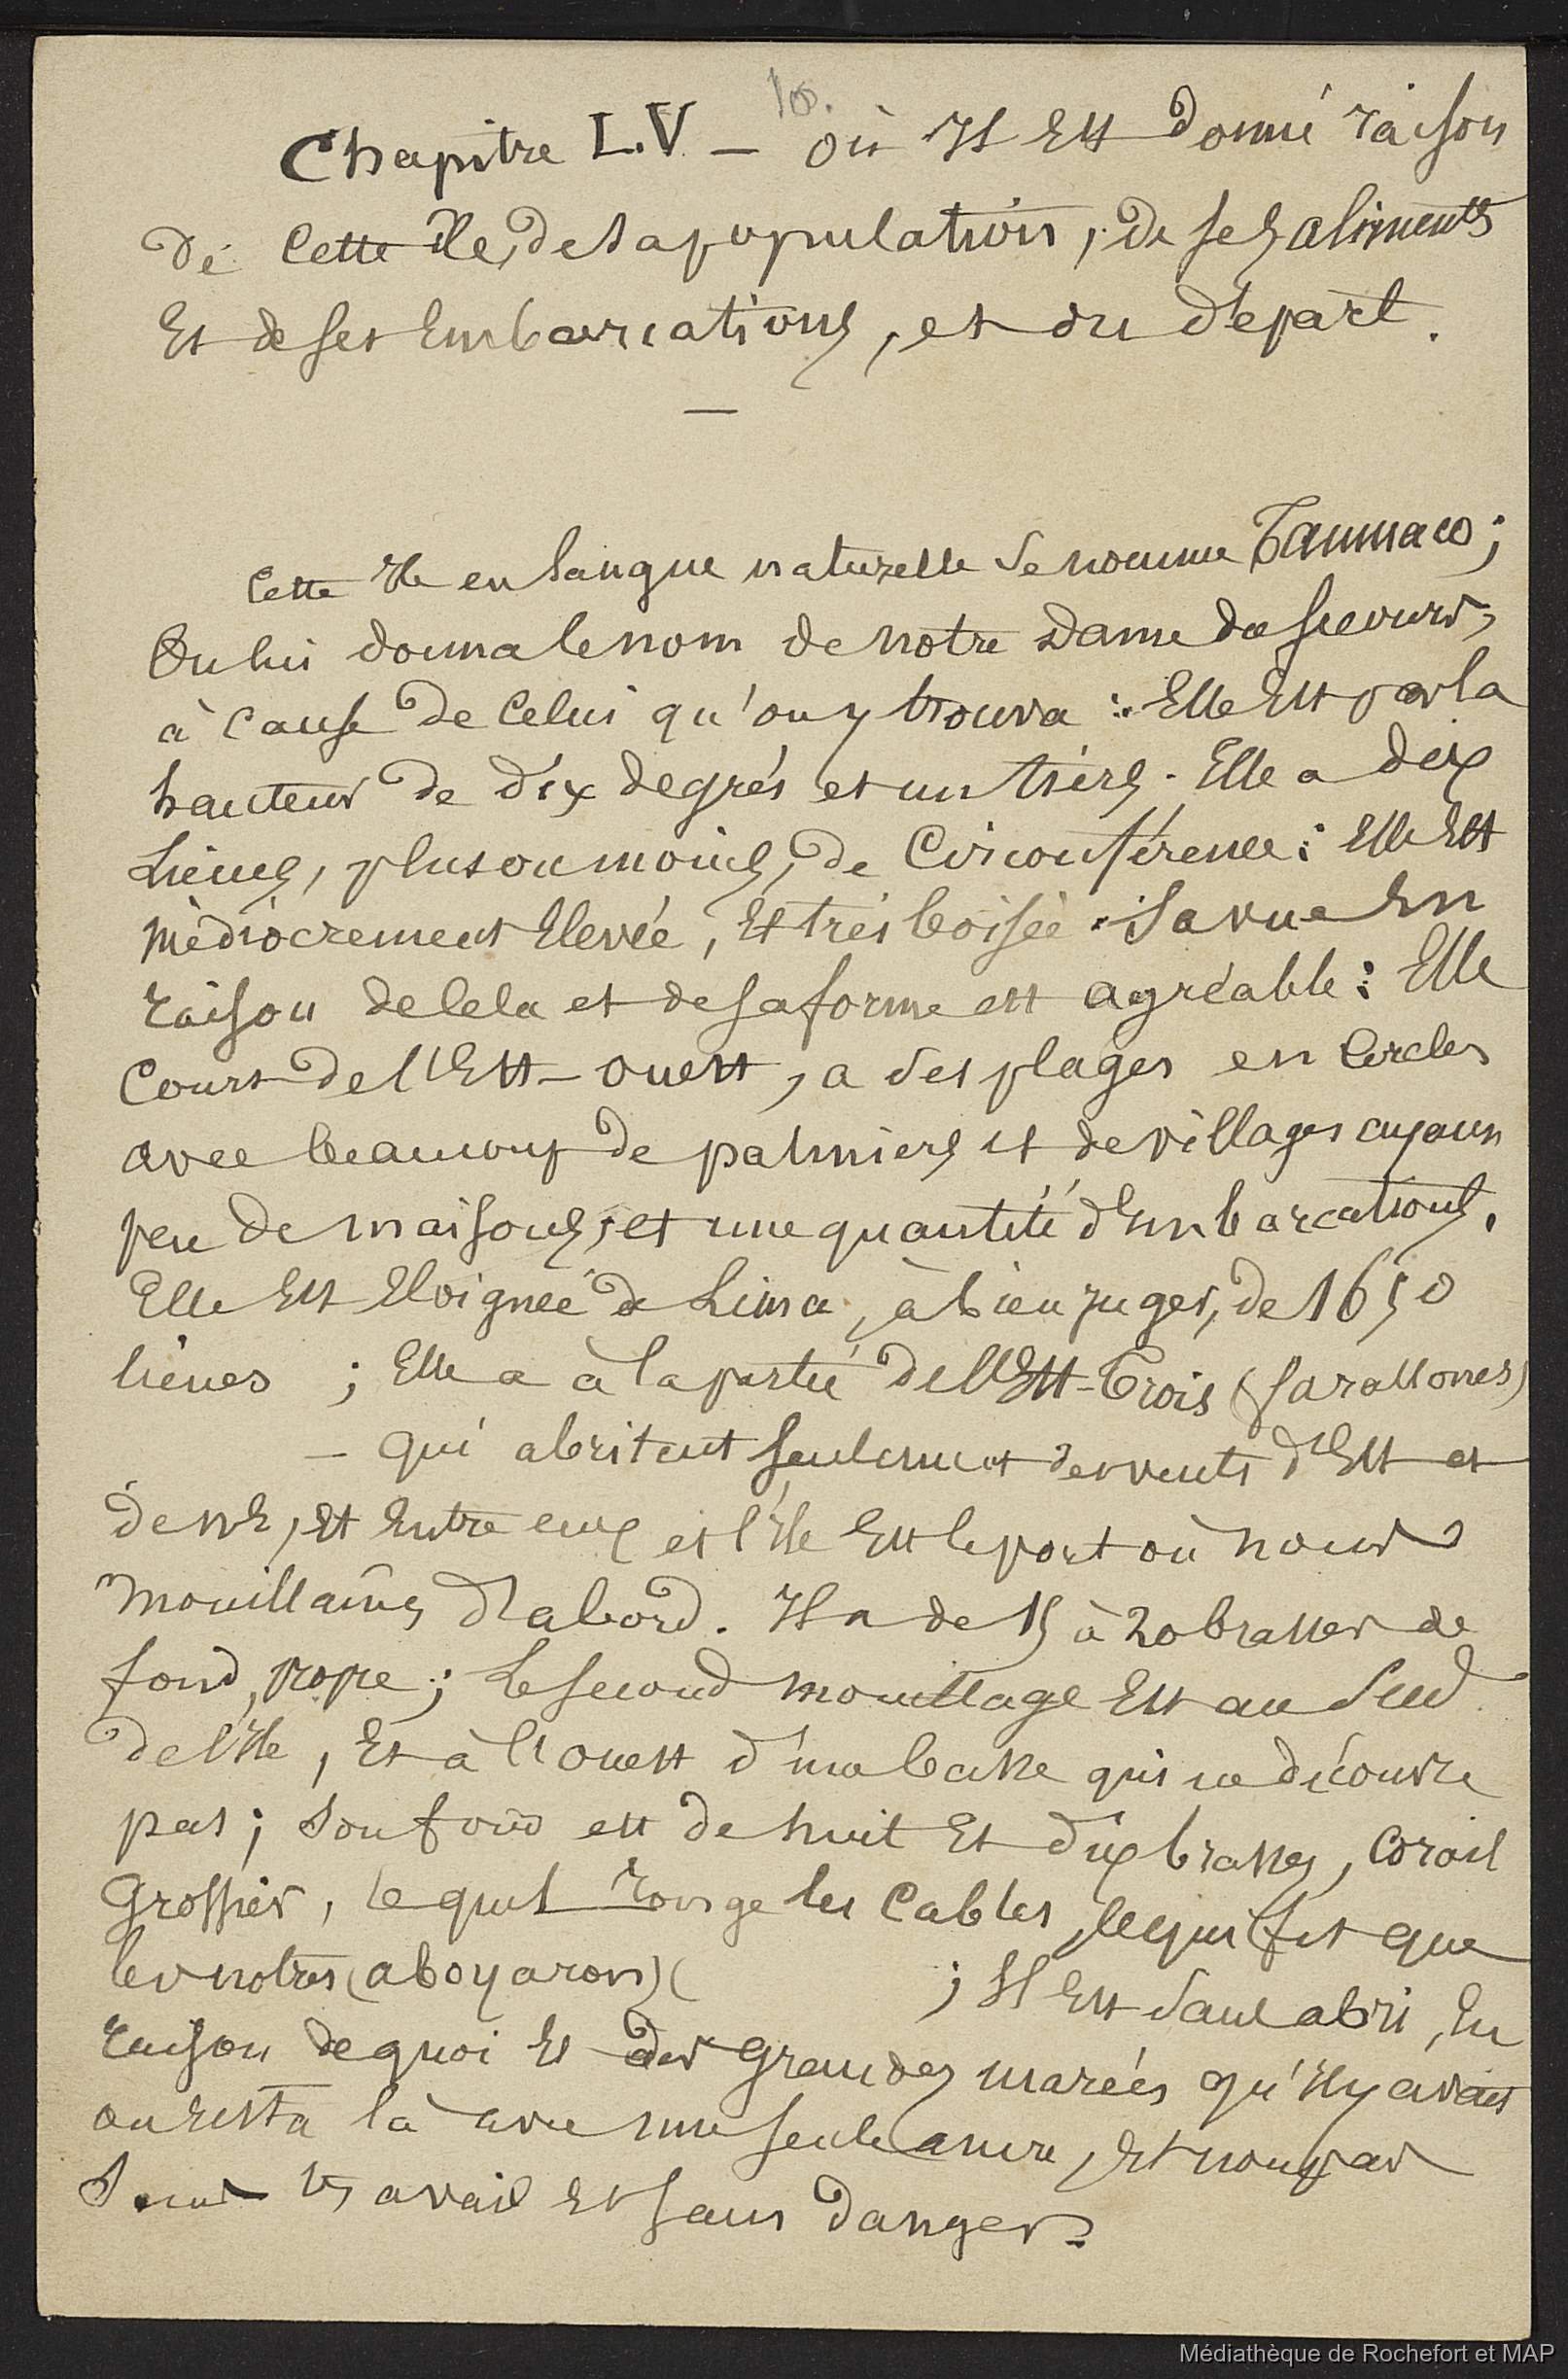 100.
Chapitre L.V. — Où Il Est donné raison
de cette Ile, de sa population, de ses aliments
Et de ses Embarcations, et du départ.
—
Cette Ile en langue naturelle se nomme Taumaco;
On lui donna le nom de notre Dame du secours,
à cause de celui qu'on y trouva : Elle Est par la
hauteur de dix degrés et un tiers. Elle a dix
Lieues, plus ou moins, de Circonférence : Elle Est
médiocrement Elevée, Et très boisée. Sa vue En
raison de cela et de sa forme est agréable : Elle
Court de l'Est-Ouest, a des plages en Cercles
avec beaucoup de palmiers et de villages ayant
peu de maisons, et une quantité d'Embarcations.
Elle Est Eloignée de Lima, à bien juger, de 1650
lieues ; Elle a à la partie de l'Est-Trois (farallones)
— qui abritent seulement des vents d'Est et
de NE, Et Entre eux et l'Ile Est le port où nous
Mouillâmes d'abord. Il a de 15 à 20 brasses de
fond, propre ; Le second mouillage Est au Sud
de l'Ile, Et à l'Ouest d'une basse qui ne découvre
pas ; Son fond est de huit Et dix brasses, Corail
Grossier, lequel ronge les Cables, ce qui fit que
les notres (aboyaron) (          ; Il Est sans abri, En
raison de quoi Et des Grandes marées qu'Il y avait
on resta là avec une seule ancre, Et non pas
Sans travail Et sans danger.
Médiathèque de Rochefort et MAP